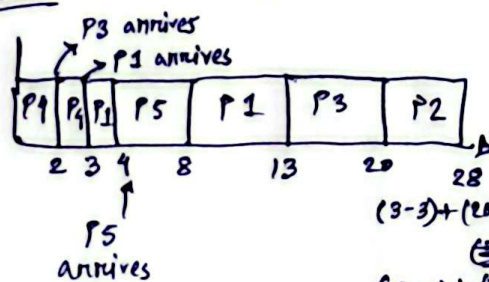 P3 arrives
P1 arrives
P4 P4 P1 P5 P1 P3 P2
2 3 4 8 13 20 28
(3-3)+(20
P5
arrives